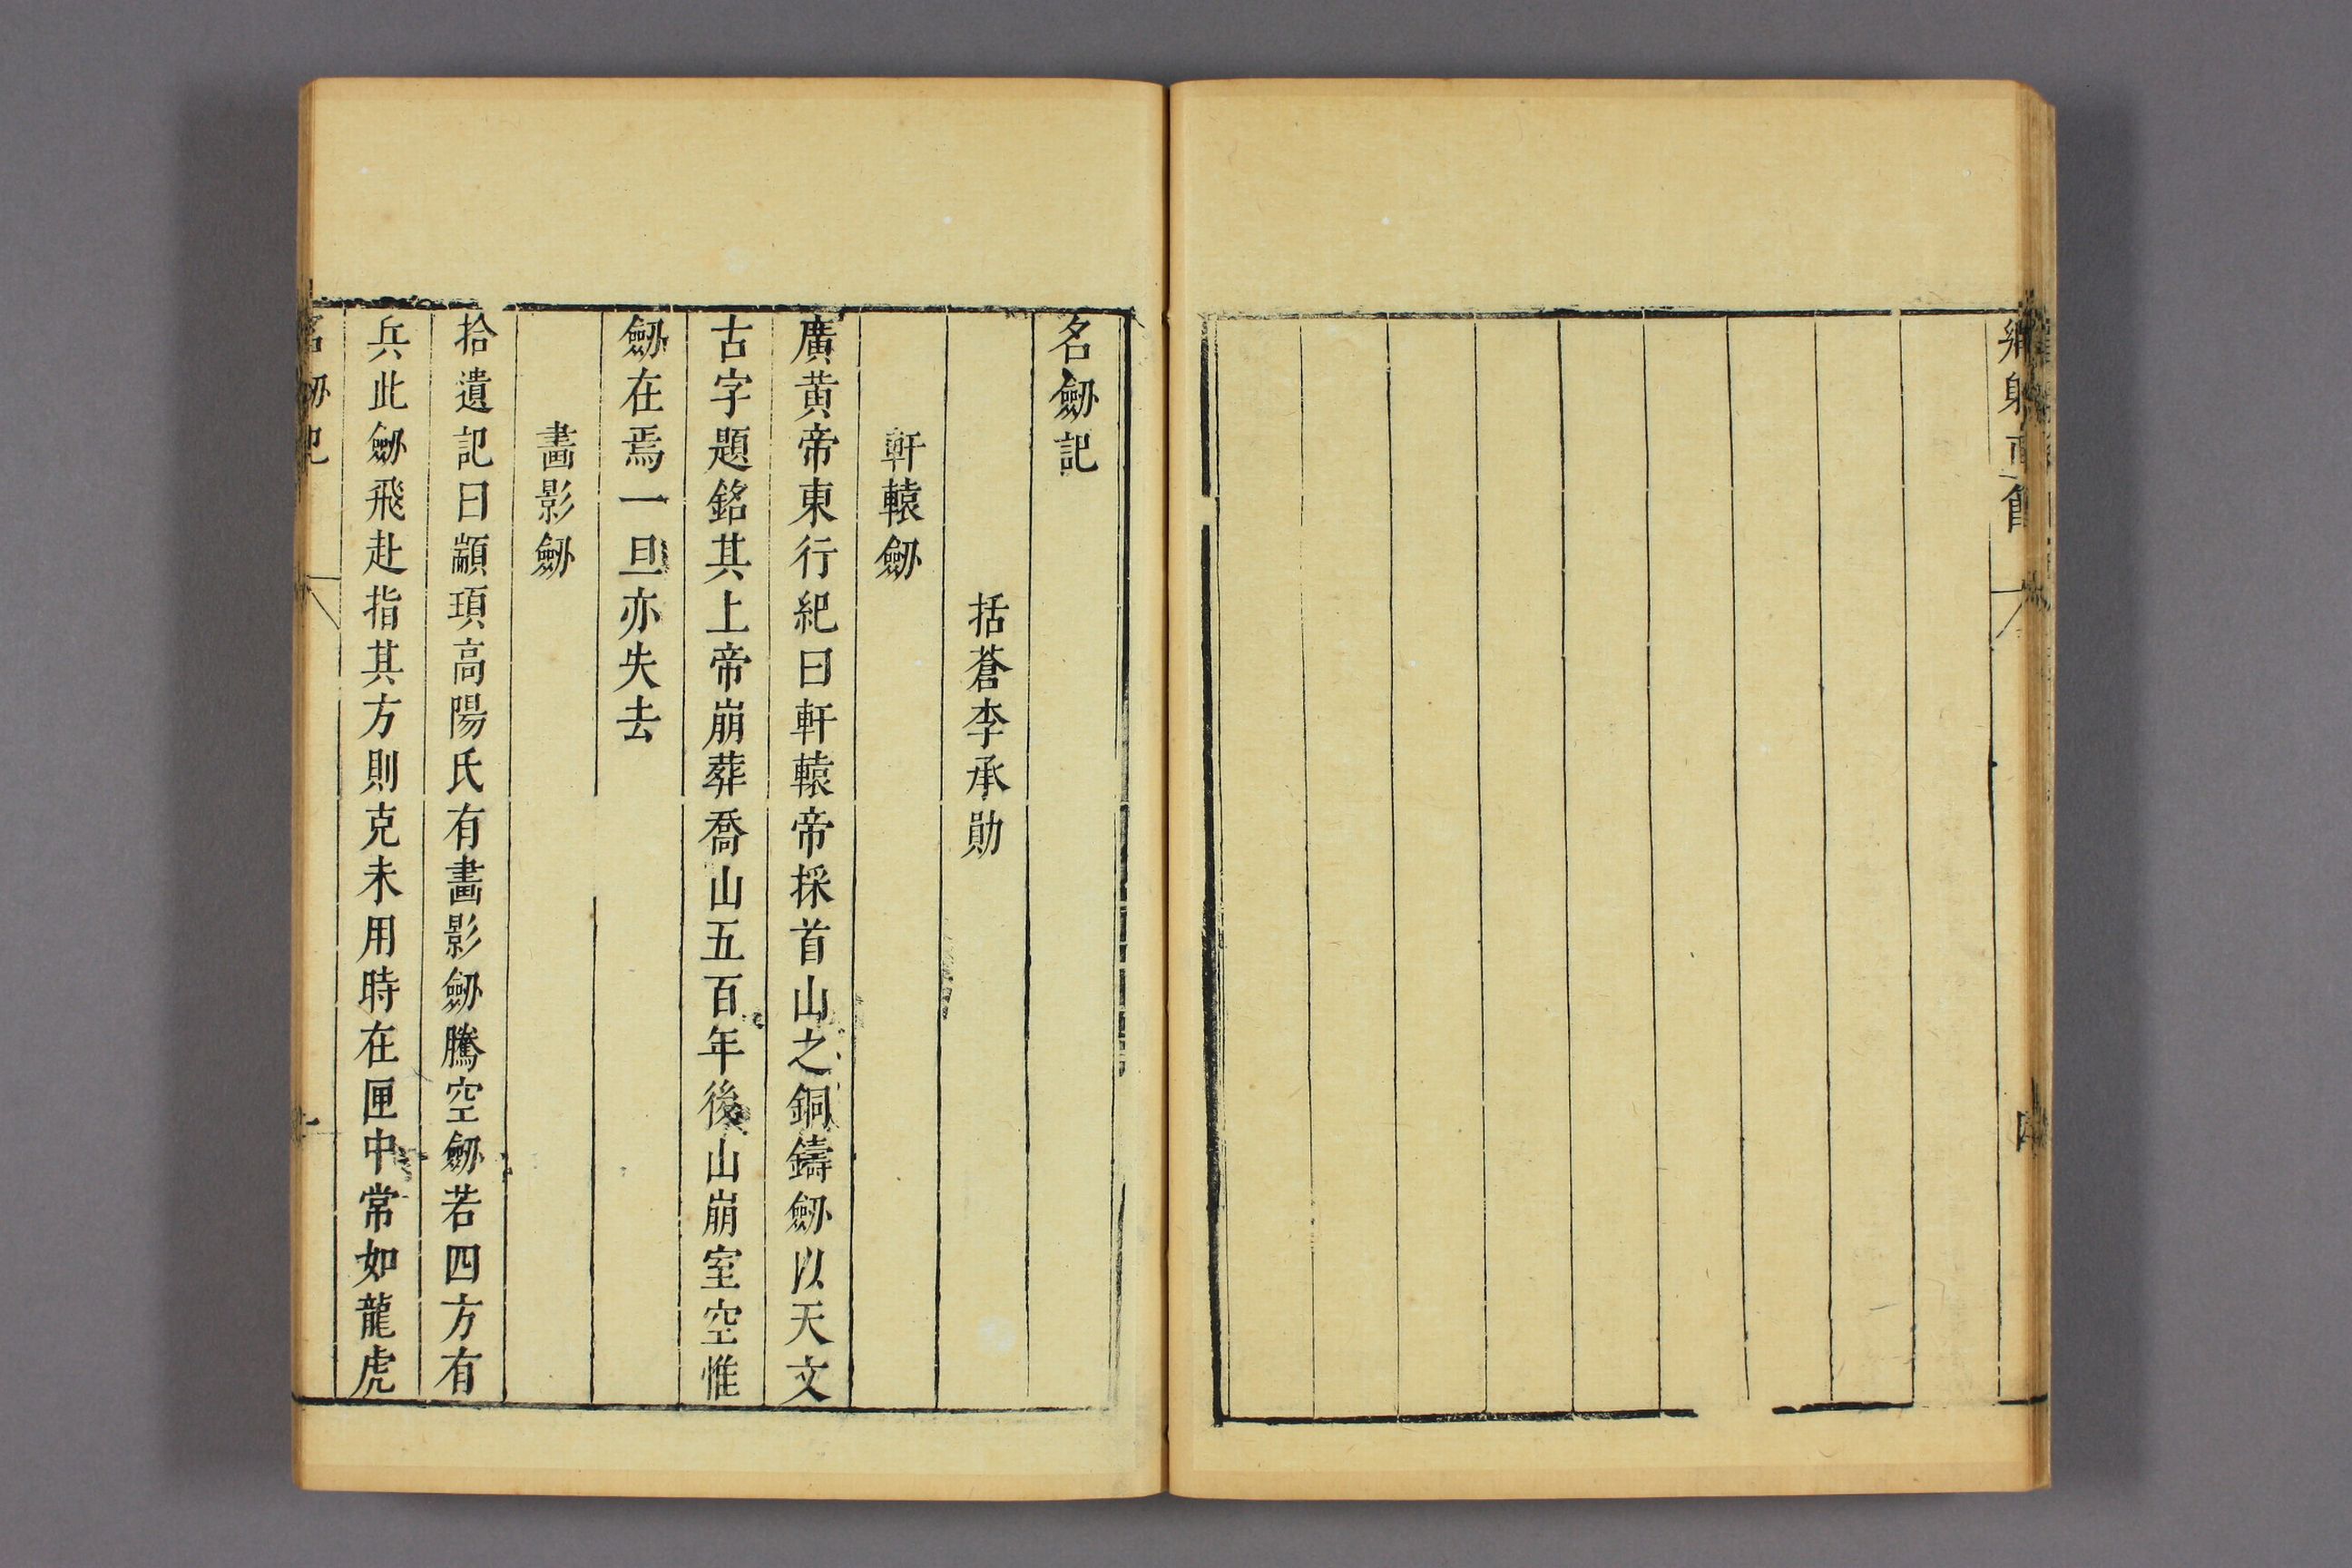 名劒記
括蒼李承勛
軒轅劒
廣黄帝東行紀曰軒轅帝採首山之銅鑄劒以天文
古字題銘其上帝崩葬喬山五百年後山崩室空惟
劒在焉一旦亦失去
畫影劒
拾遺記曰顓頊高陽氏有畫影劒騰空劒若四方有
兵此劒飛赴指其方則克未用時在匣中常如龍虎